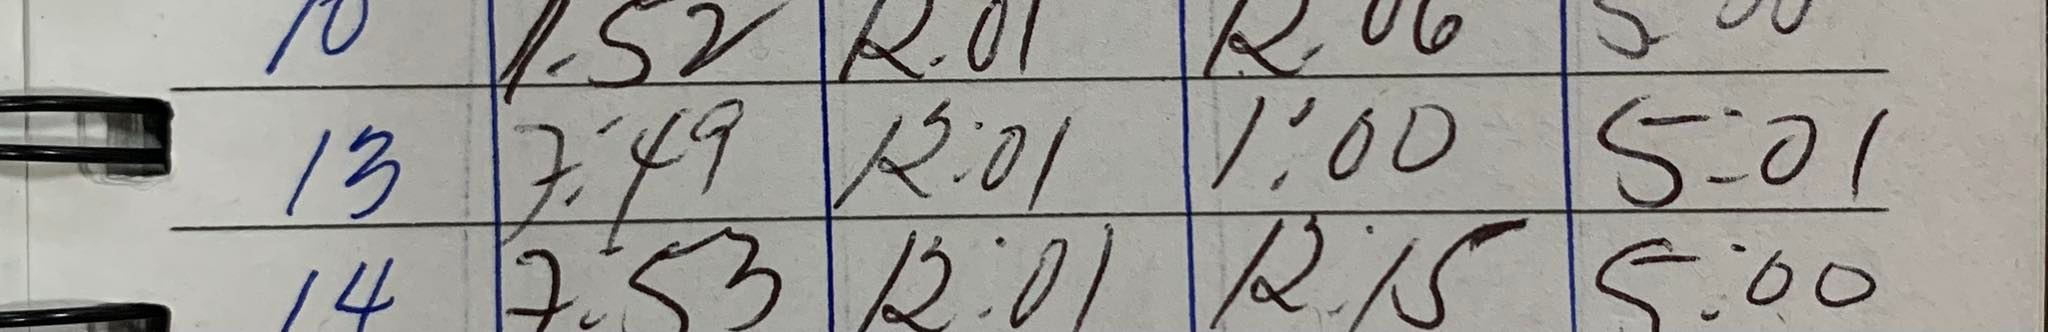 10 7:52 12:01 12:06 5:00
13 7:49 12:01 1:00 5:01
14 7:53 12:01 12:15 5:00